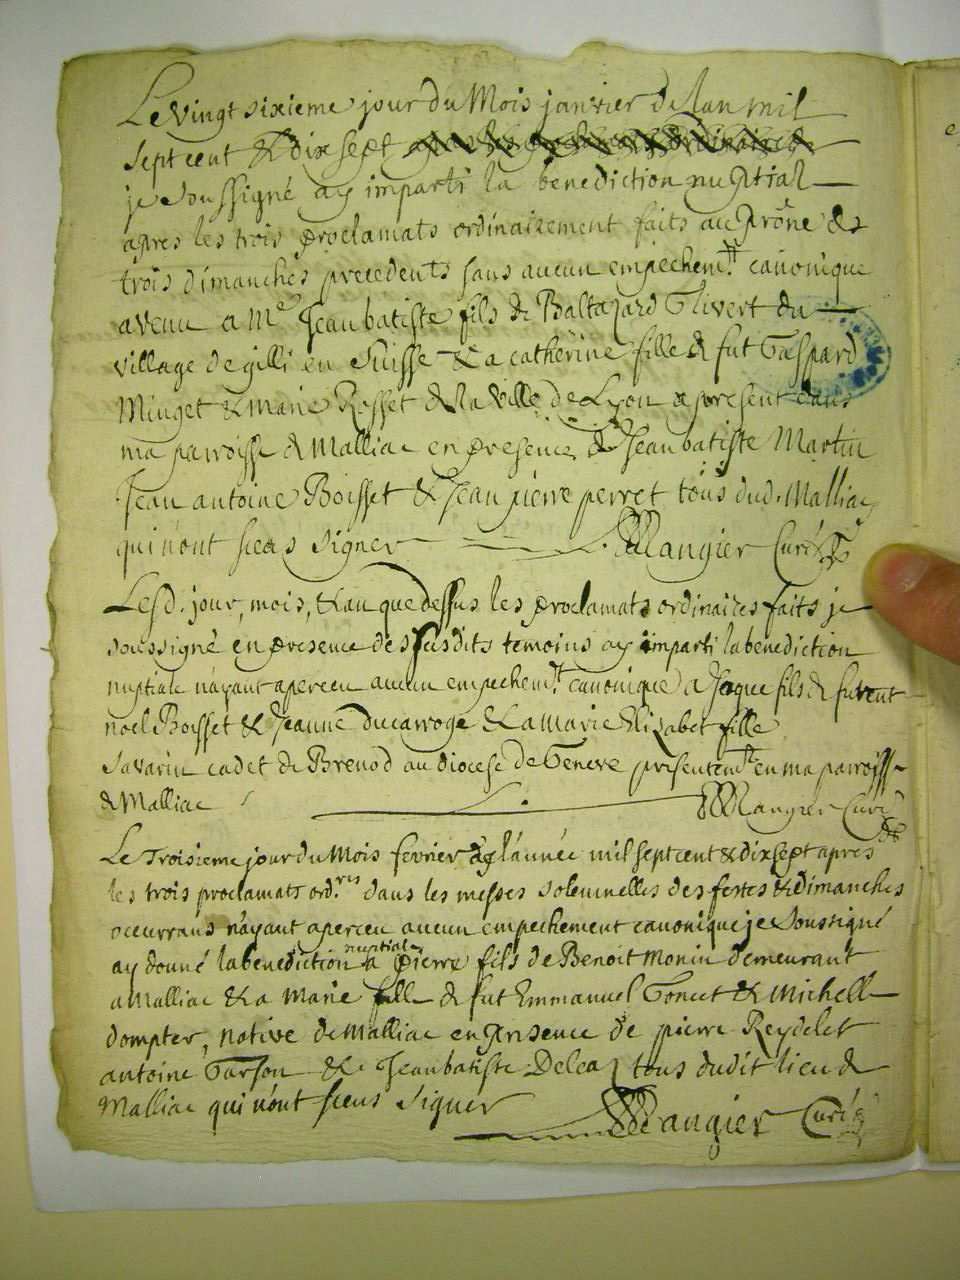 Le vingt sixieme jour du Mois janvier de l'an mil
sept cent & dix sept
je soussigné ay imparti la benediction nuptial
apres les trois proclamats ordinairement faits au prône des
trois dimanches precedents sans aucun empechemt canonique
avenu a Me Jean batiste fils de Baltazard Olivert du
village de gilli en Suisse & a catherine fille de fut Gaspard
Minget & marie Rosset de la ville de Lyon a present dans
ma parroisse de Malliac en presence de Jean batiste Martin
Jean antoine Boisset & Jean pierre perret tous dud. Malliac
qui n'ont sceas signer Mangier Curé
Lesd. jour, mois, & an que dessus les proclamats ordinaires faits je
soussigné en presence des susdits temoins ay imparti la benediction
nuptiale n'ayant aperceu aucun empechemt canonique a Jaque fils de furent
noel Boisset & Jeanne ducarroge & a Marie Elizabet fille
Savarin cadet de Brenod au diocese de Geneve presentemt en ma parroisse
de Malliac Mangier Curé
Le Troisieme jour du Mois fevrier de l'année mil sept cent & dix sept apres
les trois proclamats ord.res dans les messes solemnelles des festes & dimanches
occurrans n'ayant aperceu aucun empechement canonique je soussigné
ay donné la benediction nuptiale a Pierre fils de Benoit monin demeurant
a Malliac & a marie fille de fut Emmanuel Goncet & Michelle
dompter, native de Malliac en presence de pierre Reydelet
antoine Garson & Jean batiste Delea tous dudit lieu de
Malliac qui n'ont sceus signer Mangier Curé